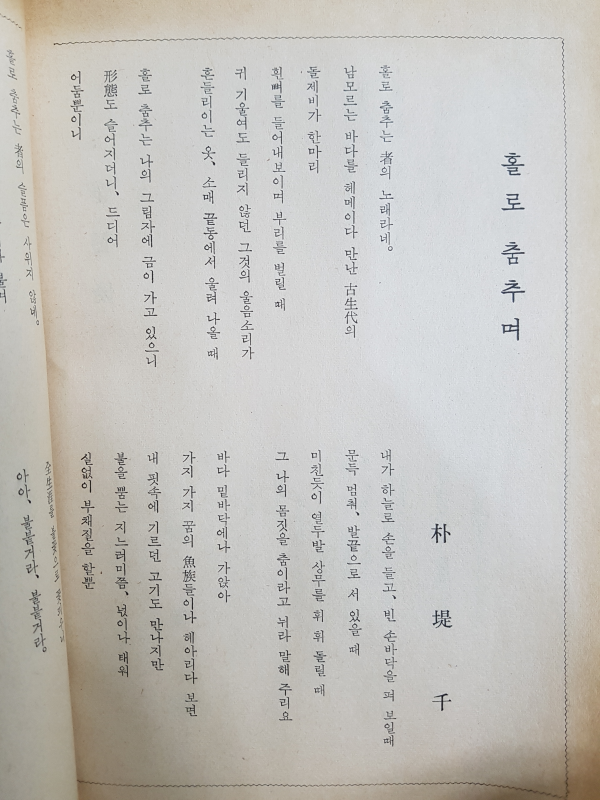 홀로 춤추며
朴堤千
홀로 춤추는 者의 노래라네。
남모르는 바다를 헤메이다 만난 古生代의
돌제비가 한마리
흰뼈를 들어내보이며 부리를 벌릴 때
귀 기울여도 들리지 않던 그것의 울음소리가
흔들리이는 옷、소매 끝동에서 울려 나올 때
홀로 춤추는 나의 그림자에 금이 가고 있으니
形態도 슬어지더니、드디어
어둠뿐이니
내가 하늘로 손을 들고、빈 손바닥을 펴 보일때
문득 멈춰、발끝으로 서 있을 때
미친듯이 열두발 상무를 휘 휘 돌릴 때
그 나의 몸짓을 춤이라고 뉘라 말해 주리요
바다 밑바닥에나 가앉아
가지 가지 꿈의 魚族들이나 헤아리다 보면
내 핏속에 기르던 고기도 만나지만
불을 뿜는 지느러미쯤、넋이나 태워
실없이 부채질을 할뿐
홀로 춤추는 者의 슬픔은 사위지 않네。
아아、불붙거라、불붙거라。